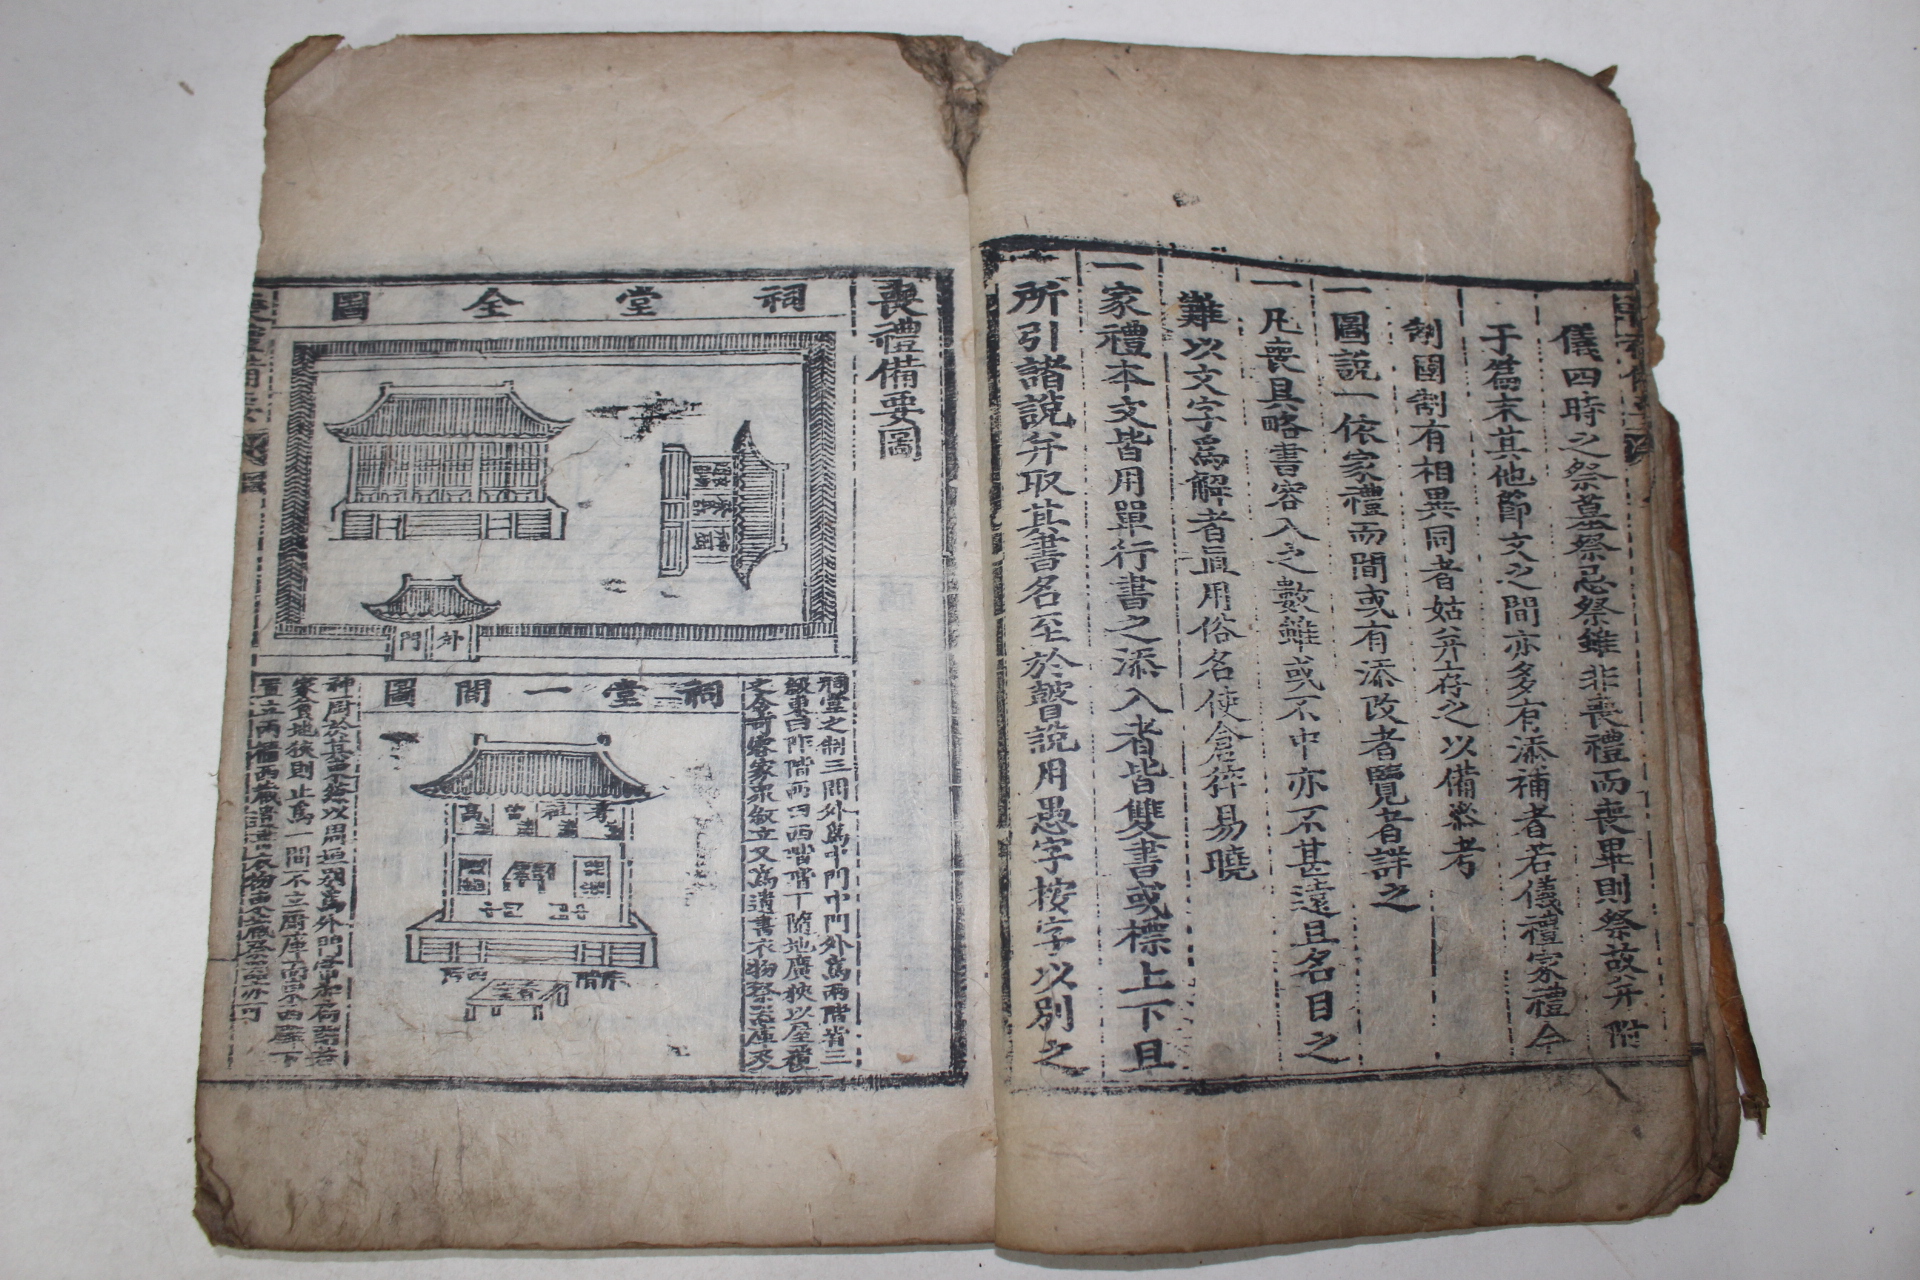 儀四時之祭墓祭忌祭雖非喪禮而喪畢則祭故幷附
于篇末其他節文之間亦多有添補者若儀禮家禮今
制國制有相異同者姑幷存之以備參考
一圖說一依家禮而間或有添改者覽者詳之
一凡喪具略書容入之數雖或不中亦不甚遠且名目之
難以文字爲解者直用俗名使倉卒易曉
一家禮本文皆用單行書之添入者皆雙書或標上下且
所引諸說幷取其書名至於瞽說用愚字按字以別之
喪禮備要圖
祠堂全圖
外門
祠堂之制三間外爲中門中門外爲兩階皆三
級東曰阼階西曰西階階下隨地廣狹以屋覆
之令可容家衆叙立又爲遺書衣物祭器庫及
祠堂一間圖
考
祖
曾
高
神廚於其東繚以周垣別爲外門常加扃閉若
家貧地狹則止爲一間不立廚庫而東西壁下
置立兩櫃西藏遺書衣物東藏祭器亦可